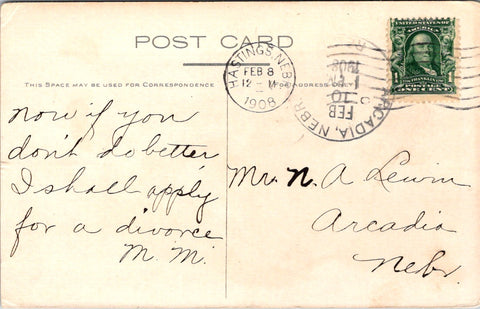 POST CARD
THIS SPACE MAY BE USED FOR CORRESPONDENCE
ADDRESS ONLY
HASTINGS, NEBR.
FEB 8
12-M
1908
ARCADIA, NEBR.
FEB
10
1908
UNITED STATES OF
AMERICA
FRANKLIN
1 1
POSTAGE
ONE CENT
now if you
don't do better
I shall apply
for a divorce
M. M.
Mr. N. A Lewin
Arcadia
Nebr.